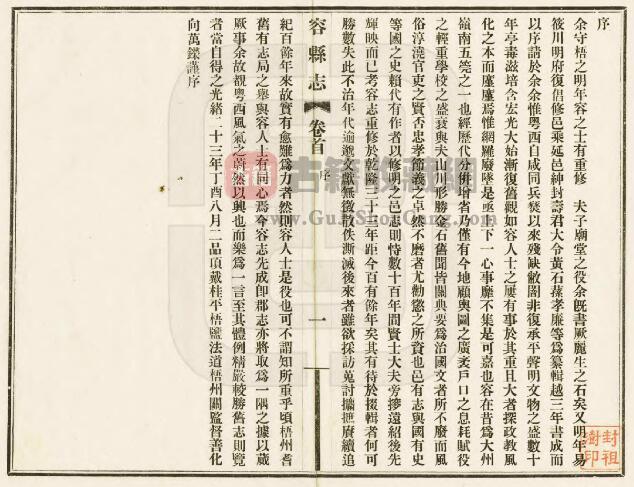 序
余守梧之明年容之士有重修　夫子廟堂之役余旣書厥麗生之石矣又明年易
筱川明府復倡修邑乘延邑紳封壽君大令黃石葆孝廉等爲纂輯越三年書成而
以序請於余余惟粵西自咸同兵燹以來殘缺敝闇非復承平聲明文物之盛數十
年亭毒滋培含宏光大始漸復舊觀如容人士之屢有事於其重且大者探政敎風
化之本而廑廑焉惟網羅廢墜是亟上下一心事靡不集是可嘉也容在昔爲大州
嶺南五筦之一也經歷代分併增省乃僅有今地顧輿圖之廣袤戶口之息耗賦役
之輕重學校之盛衰與夫山川形勝金石舊聞皆關典要爲治國文者所不廢而風
俗淳澆官吏之賢否忠孝節義之卓然不磨者尤勸懲之所資也邑有志與國有史
等國之史賴代有作者以修明之邑志則恃數十百年間賢士大夫旁搜遠紹後先
輝映而已考容志重修於乾隆三十三年距今百有餘年矣其有待於掇輯者何可
勝數失此不治年代逾邈文獻無徵散佚澌滅後來者雖欲採訪蒐討攟摭賡續追
容縣志
卷首
序
一
紀百餘年來故實有愈難爲力者然則容人士是役也可不謂知所重乎頃梧州耆
舊有志局之舉與容人士有同心焉今容志先成卽郡志亦將取爲一隅之據以蕆
厥事余故覩粵西風氣之蔚然以興也而樂爲一言至其體例精嚴較勝舊志則覽
者當自得之光緒二十三年丁酉八月二品頂戴桂平梧鹽法道梧州關監督善化
向萬鑅謹序
封祖
樹印
古籍收藏網
www.GuJiShouCang.com